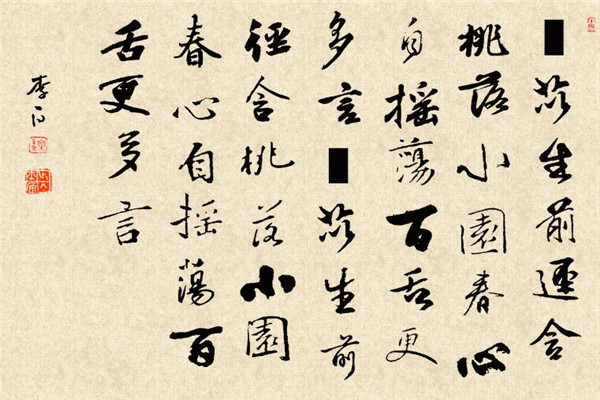 苡生前逕含
桃落小園春心
自摇蕩百舌更
多言苡生前
徑含桃落小園
春心自摇蕩百
舌更多言
李